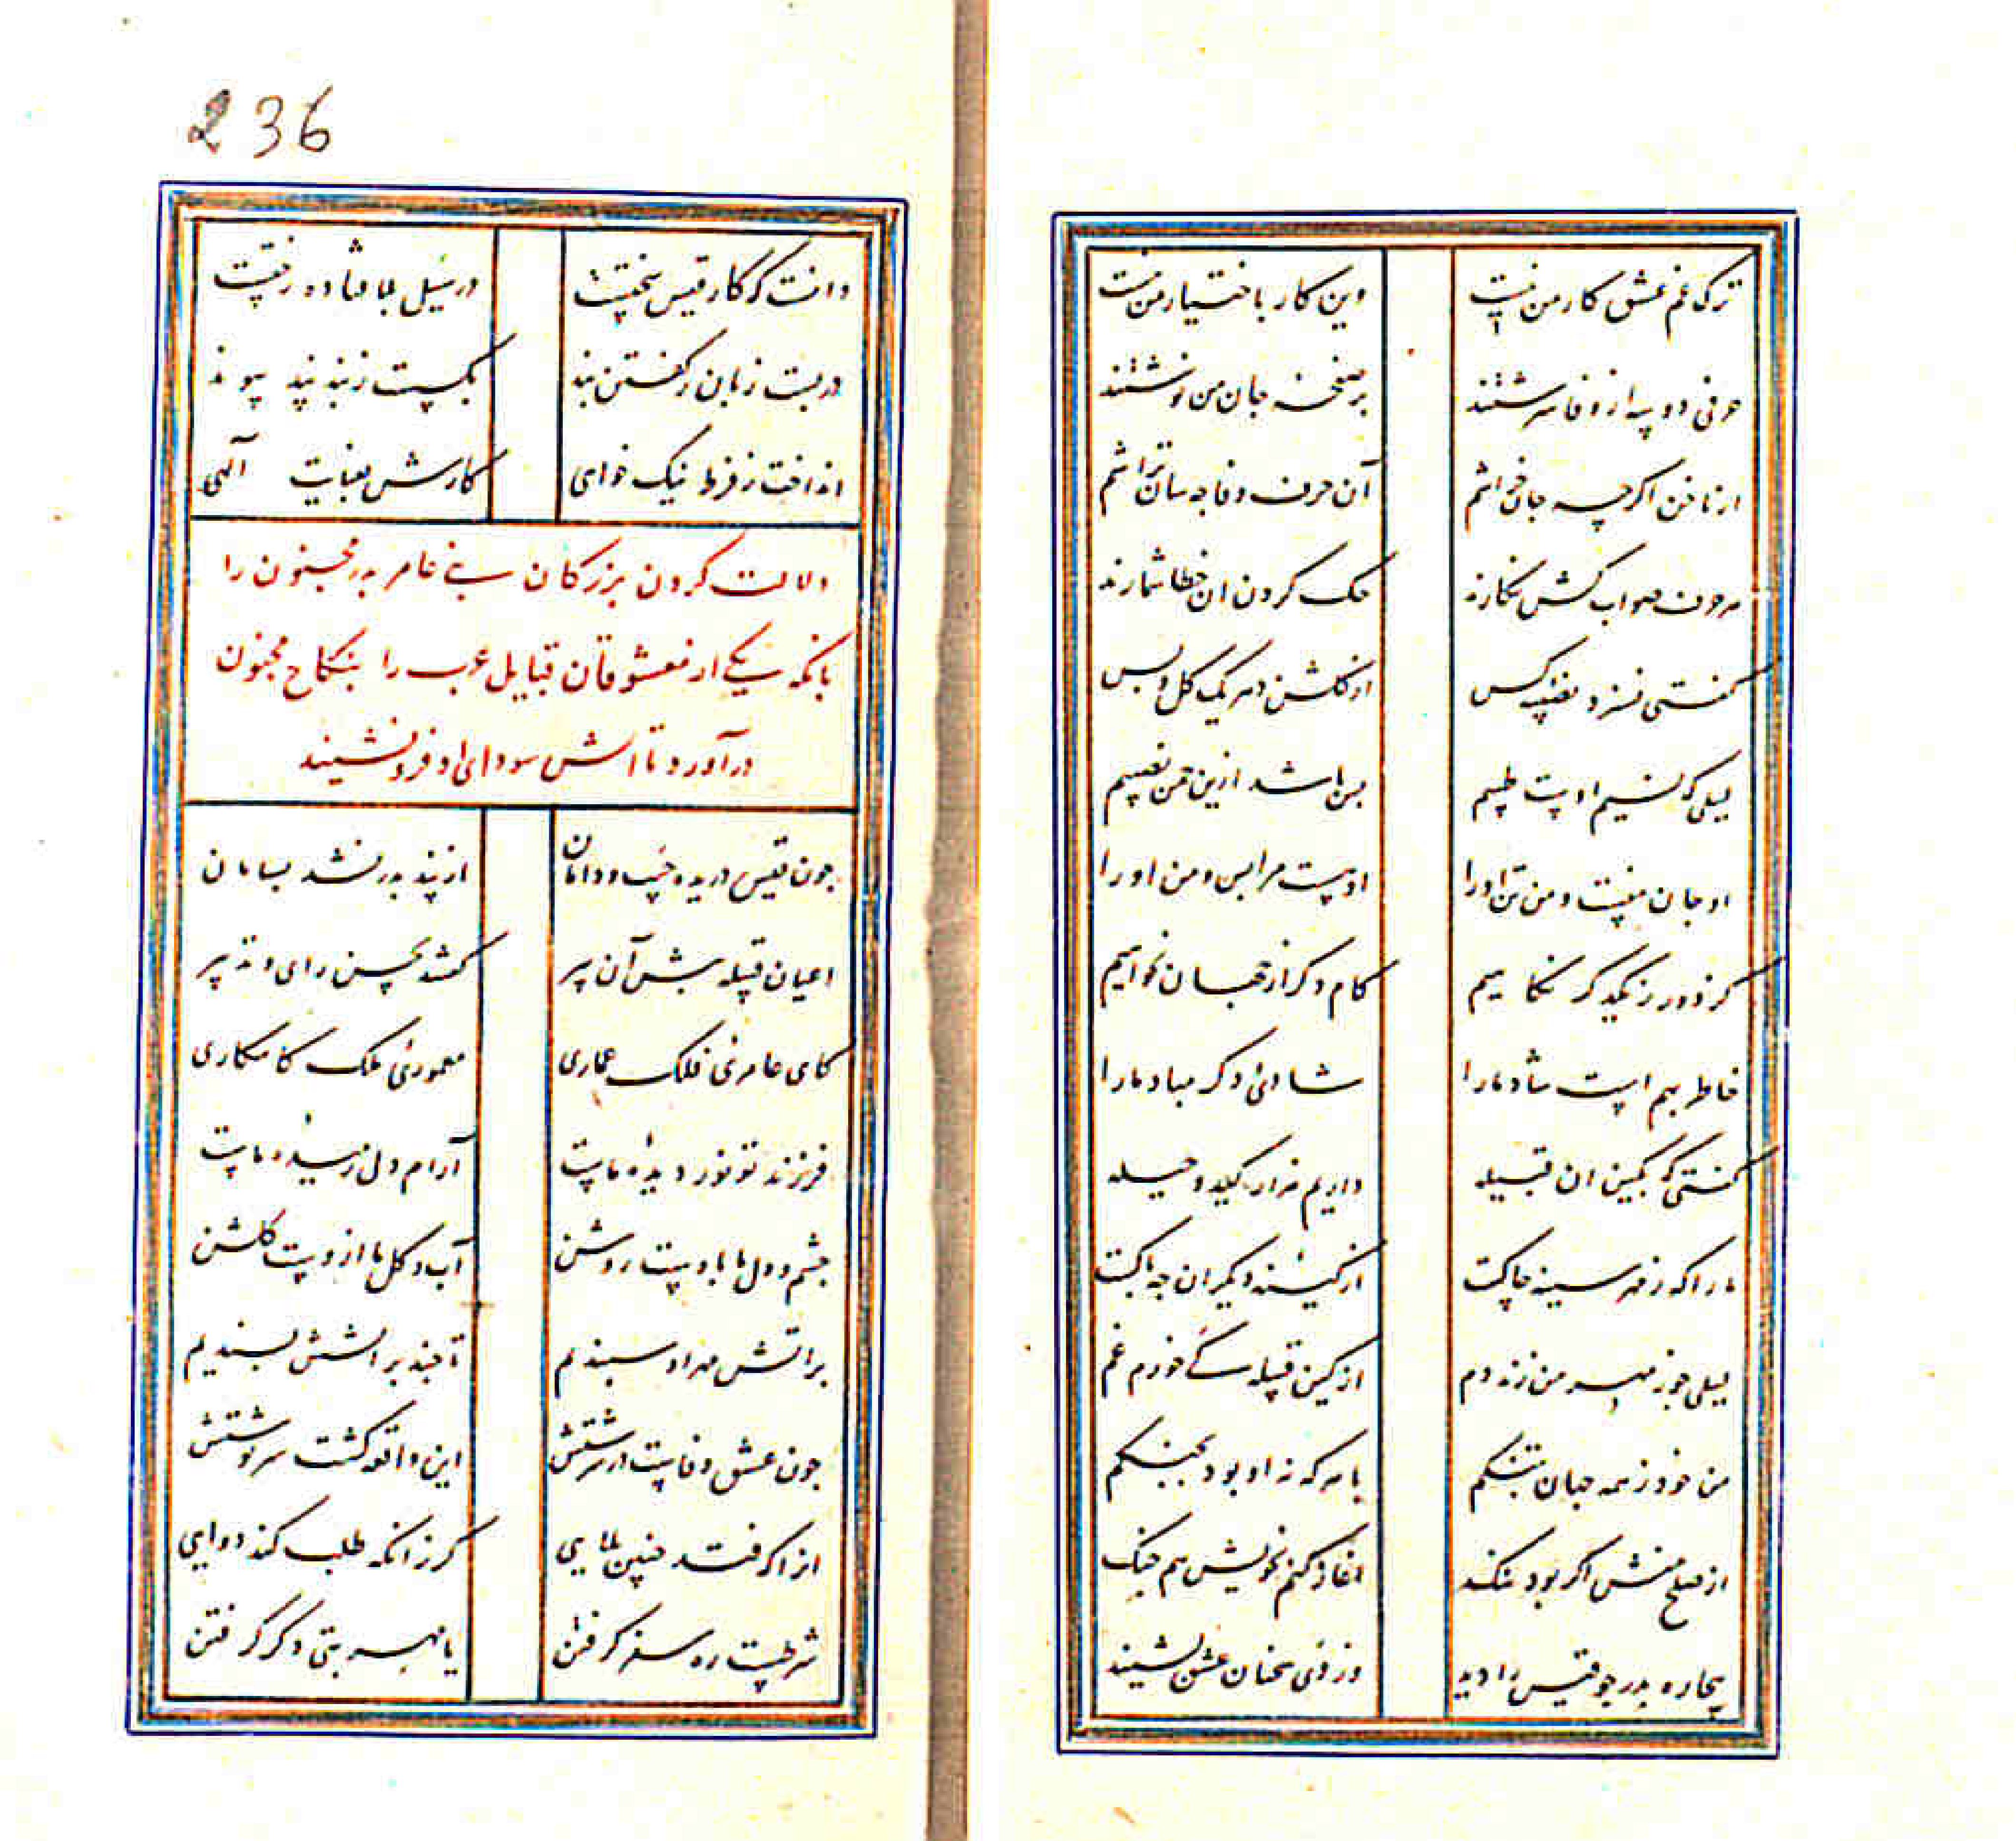 236
ترک غم عشق کار من نیست
وین کار باختیار من نیست
حرفی دو سه از وفا سرشتند
بر صفحه جان من نوشتند
از ناخن اگرچه جان خراشم
آن حرف وفا جه سان تراشم
هر حرف صواب کش نگارند
حک کردن ان خطا شمارند
گفتی نسزد نفیسه کس
از گلشن دهر یک گل و بس
لیلی که نسیم اوست طیبم
بس باشد ازین جمن نصیبم
او جان منست و من تن او را
او بست مرا بس و من او را
گر دور ز یکدگر نکاهیم
کام دگر از جهان نخواهیم
خاطر بهم است شاد ما را
شادئ دگر مباد ما را
گفتی که بکین ان قبیله
داریم هزار کید و حیله
ما را که ز مهر سینه جاکست
از کینه دیگران جه باکست
لیلی جو ز مهر من زند دم
از کین قبیله کے خورم غم
من خود ز همه جهان بتنکم
با هر که نه او بود بجنکم
از صلح منش اگر بود ننک
اغاز کنم بخویش هم جنک
بیچاره بدر جو قیس را دید
وز وی سخنان عشق بشنید
دانست که کار قیس سختست
در سیل بلا فتاده رختست
در بست زبان ز گفتن بند
بگسست ز بند بند پیوند
انداخت ز فرط نیک خواهی
کارش بعنایت آلهی
دلالت کردن بزرکان بنے عامر بدر مجنون را
بانکه یکے از معشوقان قبایل عرب را بنکاح مجنون
درآورد تا اتش سودای او فرو نشیند
جون قیس دریده جیب و دامان
از بند بدر نشد بسامان
اعیان قبیله بیش آن پیر
گفتند بحسن رای و تدبیر
کای عامرئ فلک عماری
معمورئ ملک کامکاری
فرزند تو نور دیده ماست
آرام دل رمیده ماست
جشم و دل ما باوست روشن
آب و گل ما ازوست گلشن
بر اتش مهر او سپندیم
تا جند بر اتشش بسندیم
جون عشق و وفاست در سرشتش
این واقعه گشت سرنوشتش
انرا که فتد جنین بلایی
گر زانکه طلب کند دوایی
شرطست ره سفر گرفتن
یا مهر بتی دگر گرفتن